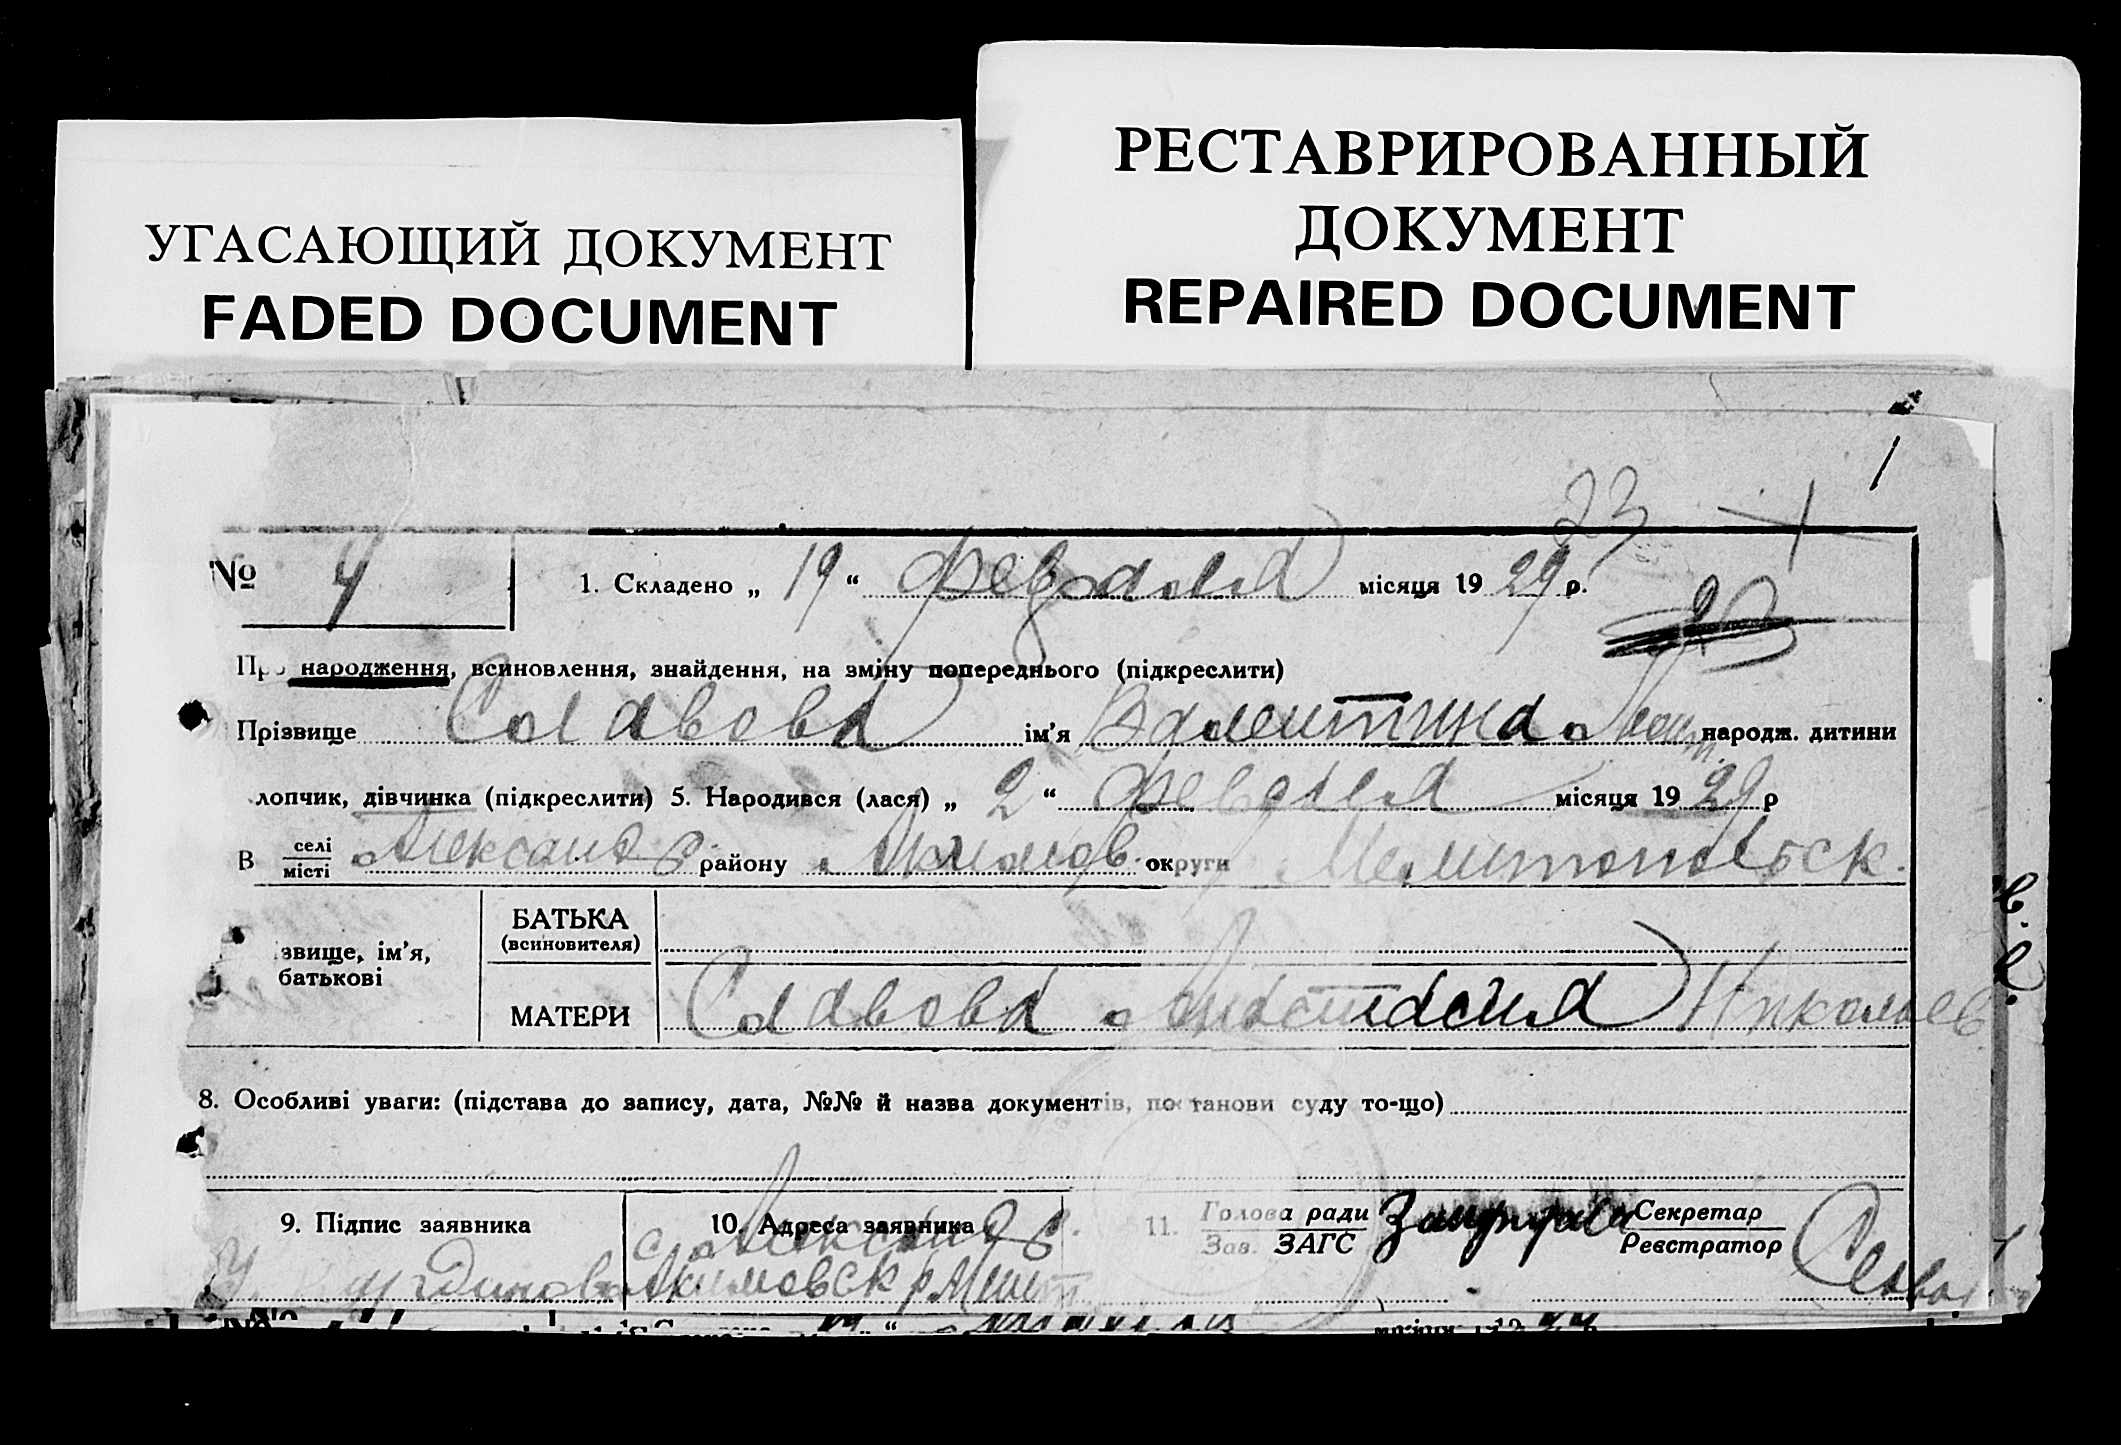 УГАСАЮЩИЙ ДОКУМЕНТ
FADED DOCUMENT
РЕСТАВРИРОВАННЫЙ
ДОКУМЕНТ
REPAIRED DOCUMENT
1
23
№ 4 1. Складено „ 19 “ февраля місяця 19 29 р.
Про народження, всиновлення, знайдення, на зміну попереднього (підкреслити)
Прізвище ім'я Валентина народж. дитини
лопчик, дівчинка (підкреслити) 5. Народився (лася) „ 2 “ февраля місяця 19 29 р
В селі місті Александр району Акимов. округи Мелитопольск.
звище, ім'я,
батькові
БАТЬКА
(всиновителя)
МАТЕРИ Анастасия Николаев
8. Особливі уваги: (підстава до запису, дата, №№ й назва документів, постанови суду то-що)
9. Підпис заявника 10. Адреса заявника 11. Голова ради Секретар
Зав. ЗАГС Реєстратор
с. Александр.
Акимовск р Мелит